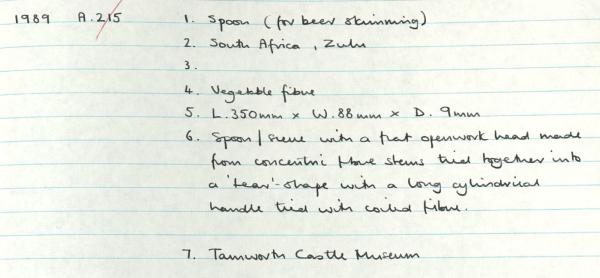 1989 A.215 1. Spoon (for beer skimming)
2. South Africa, Zulu
3.
4. Vegetable fibre
5. L.350mm x W.88mm x D. 9mm
6. Spoon/sieve with a flat openwork head made
from concentric fibre stems tied together into
a 'tear'-shape with a long cylindrical
handle tied with coiled fibre.
7. Tamworth Castle Museum